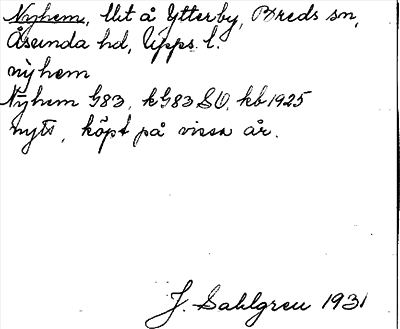 Nyhem, lht å Ytterby, Breds sn,
Åsunda hd, Upps. l.
nỳhem
Nyhem G83, kG83SO, kb 1925
nytt, köpt på vissa år.
J. Sahlgren 1931